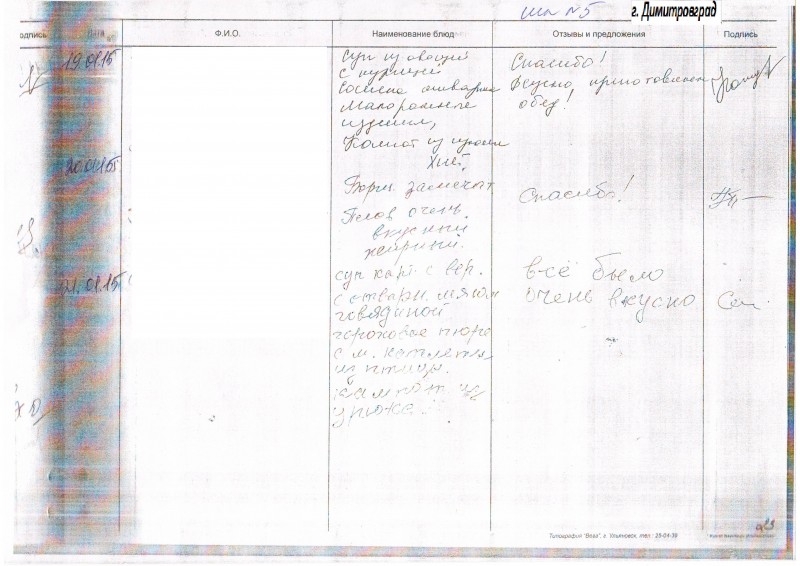 шк №5 г. Димитровград
одпись Дата Ф.И.О. Наименование блюд Отзывы и предложения Подпись
19.01.15 Суп из овощей Спасибо!
с курицей Вкусно приготовлен
обед!
Макаронные
изделия,
Компот из
20.01.15 Хлеб
Борщ Спасибо!
Плов очень
вкусный
жирный.
суп карт. с вер. всё было
21.01.15 с отварн. мясом очень вкусно
говядиной
гороховое пюре
с м. котлета
из птицы.
компот из
урюка
Типография "Вега", г. Ульяновск, тел.: 25-04-39